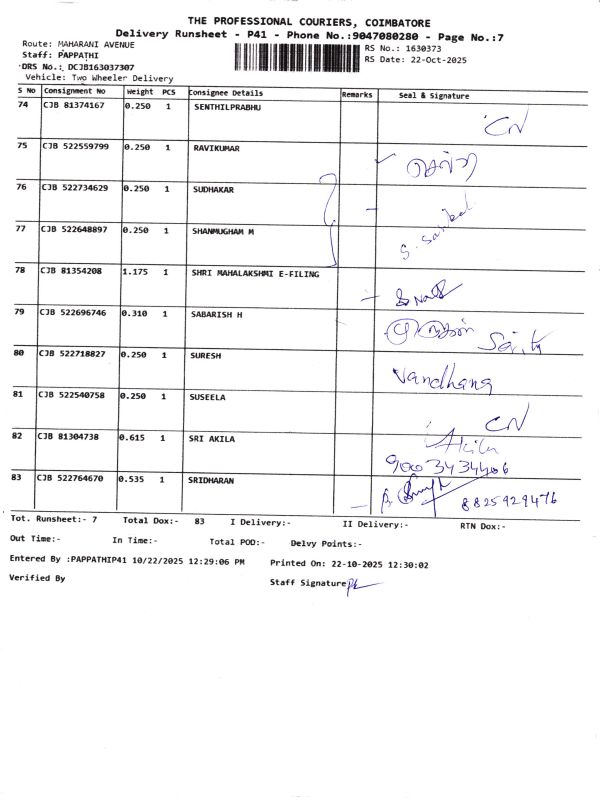 THE PROFESSIONAL COURIERS, COIMBATORE
Delivery Runsheet - P41 - Phone No.:9047080280 - Page No.:7
Route: MAHARANI AVENUE RS No.: 1630373
Staff: PAPPATHI RS Date: 22-Oct-2025
DRS No.: DCJB163037307
Vehicle: Two Wheeler Delivery
S No Consignment No Weight PCS Consignee Details Remarks Seal & Signature
74 CJB 81374167 0.250 1 SENTHILPRABHU
CN
75 CJB 522559799 0.250 1 RAVIKUMAR
76 CJB 522734629 0.250 1 SUDHAKAR
77 CJB 522648897 0.250 1 SHANMUGHAM M
78 CJB 81354208 1.175 1 SHRI MAHALAKSHMI E-FILING
79 CJB 522696746 0.310 1 SABARISH H
80 CJB 522718827 0.250 1 SURESH
Vandhana
81 CJB 522540758 0.250 1 SUSEELA
CN
82 CJB 81304738 0.615 1 SRI AKILA
Akila
9003434406
83 CJB 522764670 0.535 1 SRIDHARAN
8825929476
Tot. Runsheet:- 7 Total Dox:- 83 I Delivery:- II Delivery:- RTN Dox:-
Out Time:- In Time:- Total POD:- Delvy Points:-
Entered By :PAPPATHIP41 10/22/2025 12:29:06 PM Printed On: 22-10-2025 12:30:02
Verified By Staff Signature